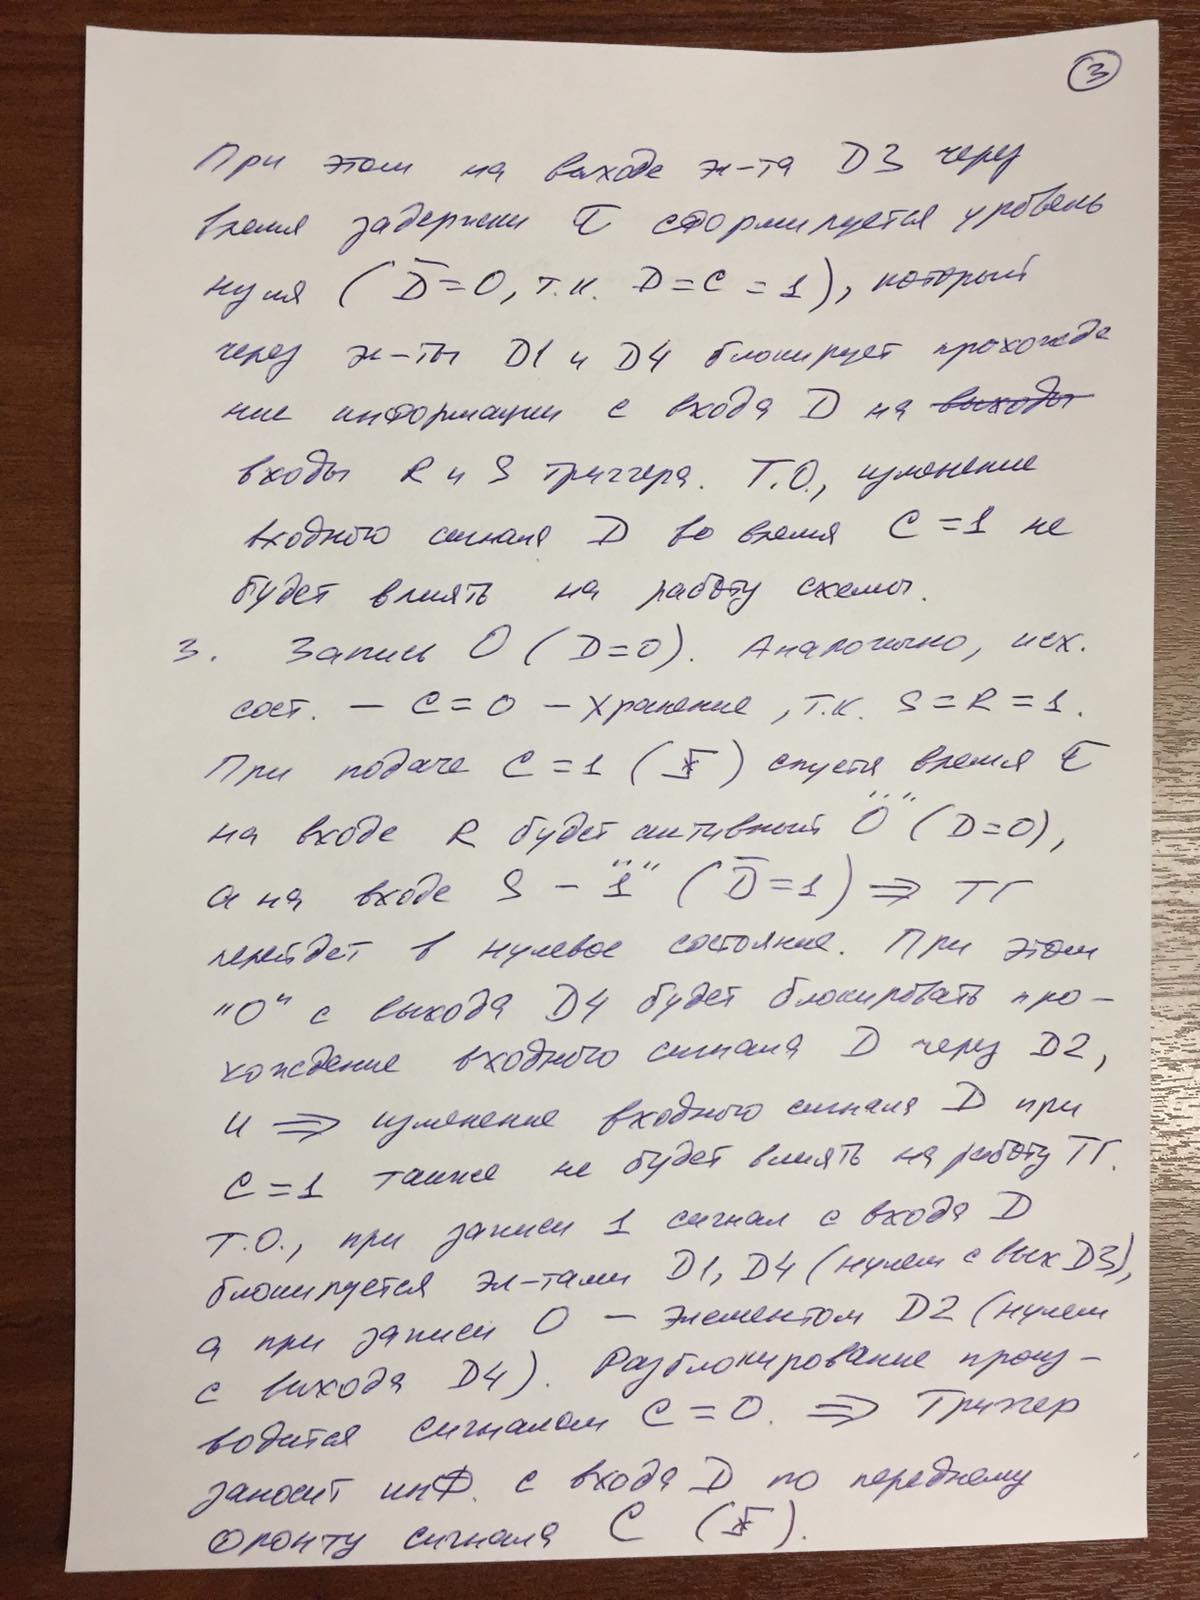 3
При этом на выходе эл-та D3 через
время задержки τ сформируется уровень
нуля ( D̅ = 0, т.к. D = C = 1 ), который
через эл-ты D1 и D4 блокирует прохожде
ние информации с входа D на выходы
входы R и S триггера. Т.О., изменение
входного сигнала D во время C = 1 не
будет влиять на работу схемы.
3. Запись 0 ( D = 0 ). Аналогично, исх.
сост. – C = 0 – хранение, т.к. S = R = 1.
При подаче C = 1 ( ) спустя время τ
на входе R будет активный "0" ( D = 0 ),
а на входе S – "1" ( D̅ = 1 ) ⇒ ТГ
перейдет в нулевое состояние. При этом
"0" с выхода D4 будет блокировать про–
хождение входного сигнала D через D2,
и ⇒ изменение входного сигнала D при
C = 1 также не будет влиять на работу ТГ.
Т.О., при записи 1 сигнал с входа D
блокируется эл-тами D1, D4 (нулем с вых D3),
а при записи 0 – элементом D2 (нулем
с выхода D4). Разблокирование произ–
водится сигналом C = 0. ⇒ Триггер
заносит инф. с входа D по переднему
фронту сигнала C ( ).